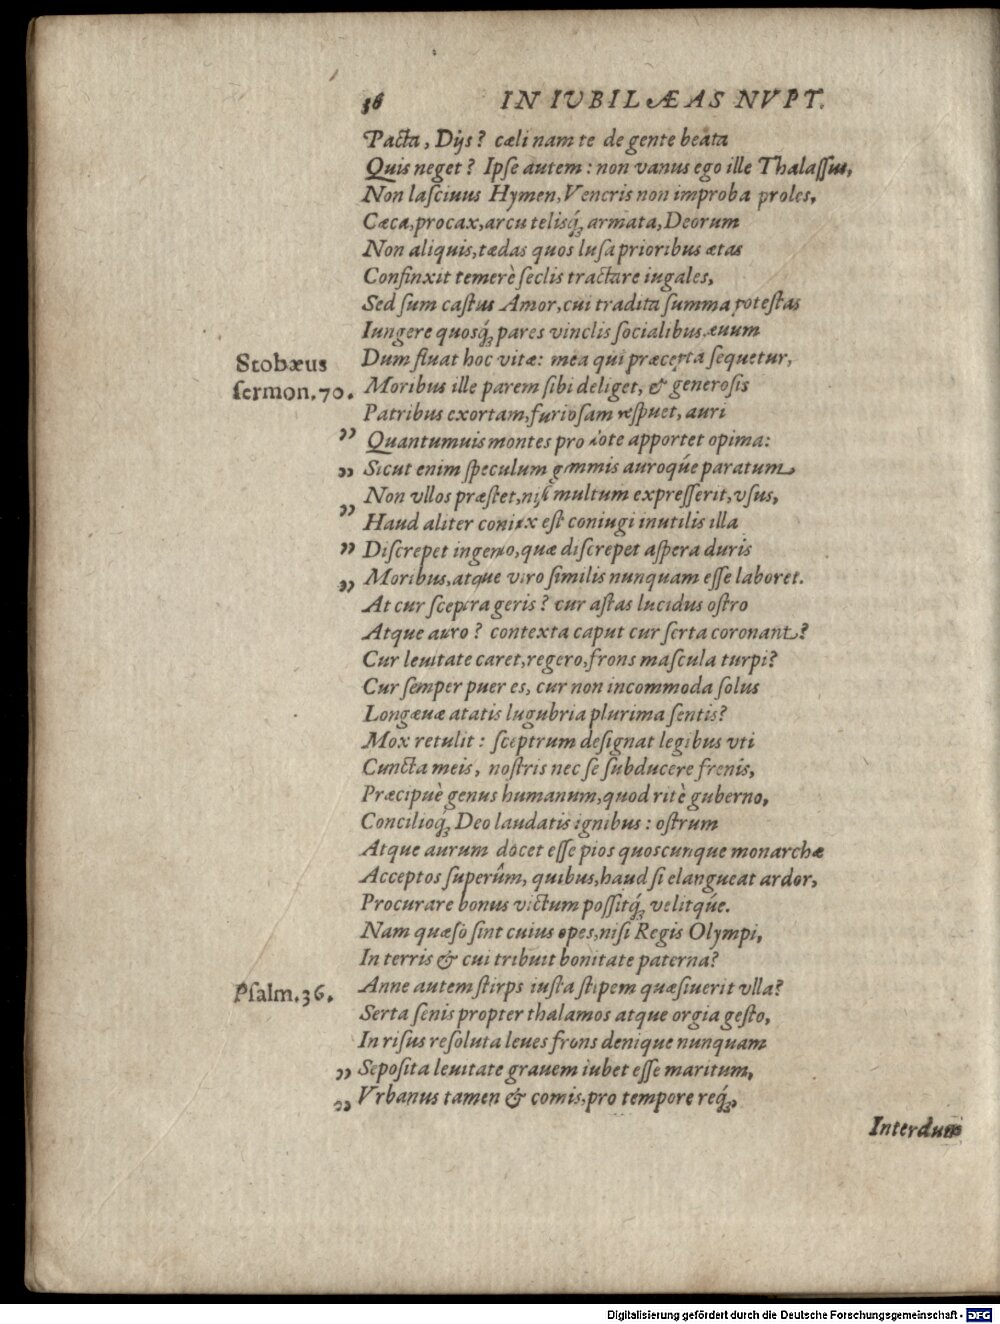 36 IN IVBILÆAS NVPT.
Pacta, Dijs? cæli nam te de gente beata
Quis neget? Ipſe autem: non vanus ego ille Thalaſſus,
Non laſciuus Hymen, Veneris non improba proles,
Cæca, procax, arcu telisq́; armata, Deorum
Non aliquis, tædas quos luſa prioribus ætas
Confinxit temerè ſeclis tractare iugales,
Sed ſum caſtus Amor, cui tradita ſumma poteſtas
Iungere quosq́; pares vinclis ſocialibus, æuum
Stobæus Dum fluat hoc vitæ: mea qui præcepta ſequetur,
ſermon. 70. Moribus ille parem ſibi deliget, & generoſis
Patribus exortam, furioſam reſpuet, auri
„ Quantumuis montes pro dote apportet opima:
„ Sicut enim ſpeculum gemmis auroqúe paratum
„ Non vllos præſtet, niſi multum expreſſerit, vſus,
Haud aliter coniux eſt coniugi inutilis illa
„ Diſcrepet ingenio, quæ diſcrepet aſpera duris
„ Moribus, atque viro ſimilis nunquam eſſe laboret.
At cur ſceptra geris? cur aſtas lucidus oſtro
Atque auro? contexta caput cur ſerta coronant?
Cur leuitate caret, regero, frons maſcula turpi?
Cur ſemper puer es, cur non incommoda ſolus
Longæuæ ætatis lugubria plurima ſentis?
Mox retulit: ſceptrum deſignat legibus vti
Cuncta meis, noſtris nec ſe ſubducere frenis,
Præcipuè genus humanum, quod ritè guberno,
Concilioq́; Deo laudatis ignibus: oſtrum
Atque aurum docet eſſe pios quoscunque monarchæ
Acceptos ſuperûm, quibus, haud ſi elangueat ardor,
Procurare bonus victum poſſitq́; velitqúe.
Nam quæſo ſint cuius opes, niſi Regis Olympi,
In terris & cui tribuit bonitate paterna?
Pſalm. 36. Anne autem ſtirps iuſta ſtipem quæſiuerit vlla?
Serta ſenis propter thalamos atque orgia geſto,
In riſus reſoluta leues frons denique nunquam
„ Sepoſita leuitate grauem iubet eſſe maritum,
„ Vrbanus tamen & comis, pro tempore req́;
Interdum
Digitalisierung gefördert durch die Deutsche Forschungsgemeinschaft - DFG